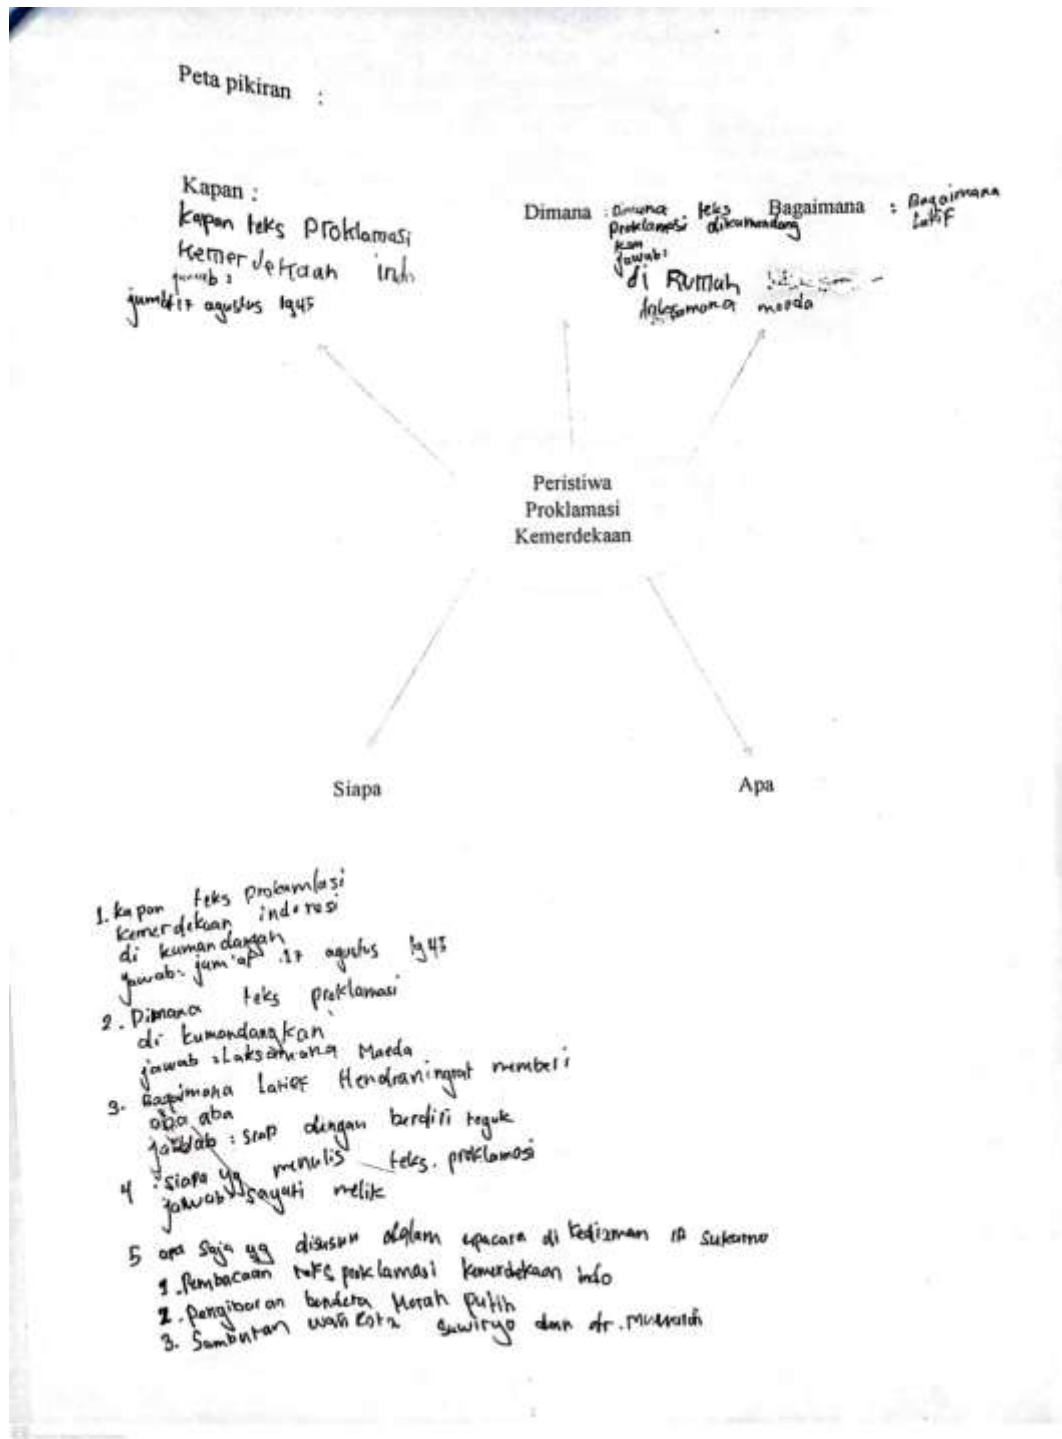 Peta pikiran :
Kapan :
kapan teks Proklamasi
kemerdekaan indo
jawab :
17 agustus 1945
Dimana : Dimana teks
Proklamasi dikumandang
kan
jawab:
di Rumah
maeda
Bagaimana : Bagaimana
Latif
Peristiwa
Proklamasi
Kemerdekaan
Siapa
Apa
1. kapan teks prokamlasi
kemerdekaan indonesi
di kumandangan
jawab: jum'at 17 agustus 1945
2. Dimana teks proklamasi
di kumandangkan
jawab : Laksamana Maeda
3. Bagaimana Latief Hendraningrat memberi
aba aba
jawab : siap dengan berdiri teguk
4 . Siapa yg menulis teks. proklamasi
jawab : Sayuti melik
5 apa saja yg disusun dalam upacara di kediaman IR Sukarno
1. Pembacaan teks proklamasi kemerdekaan indo
2. Pengibaran bendera Merah Putih
3. Sambutan wali kota Suwiryo dan dr. Muwardi